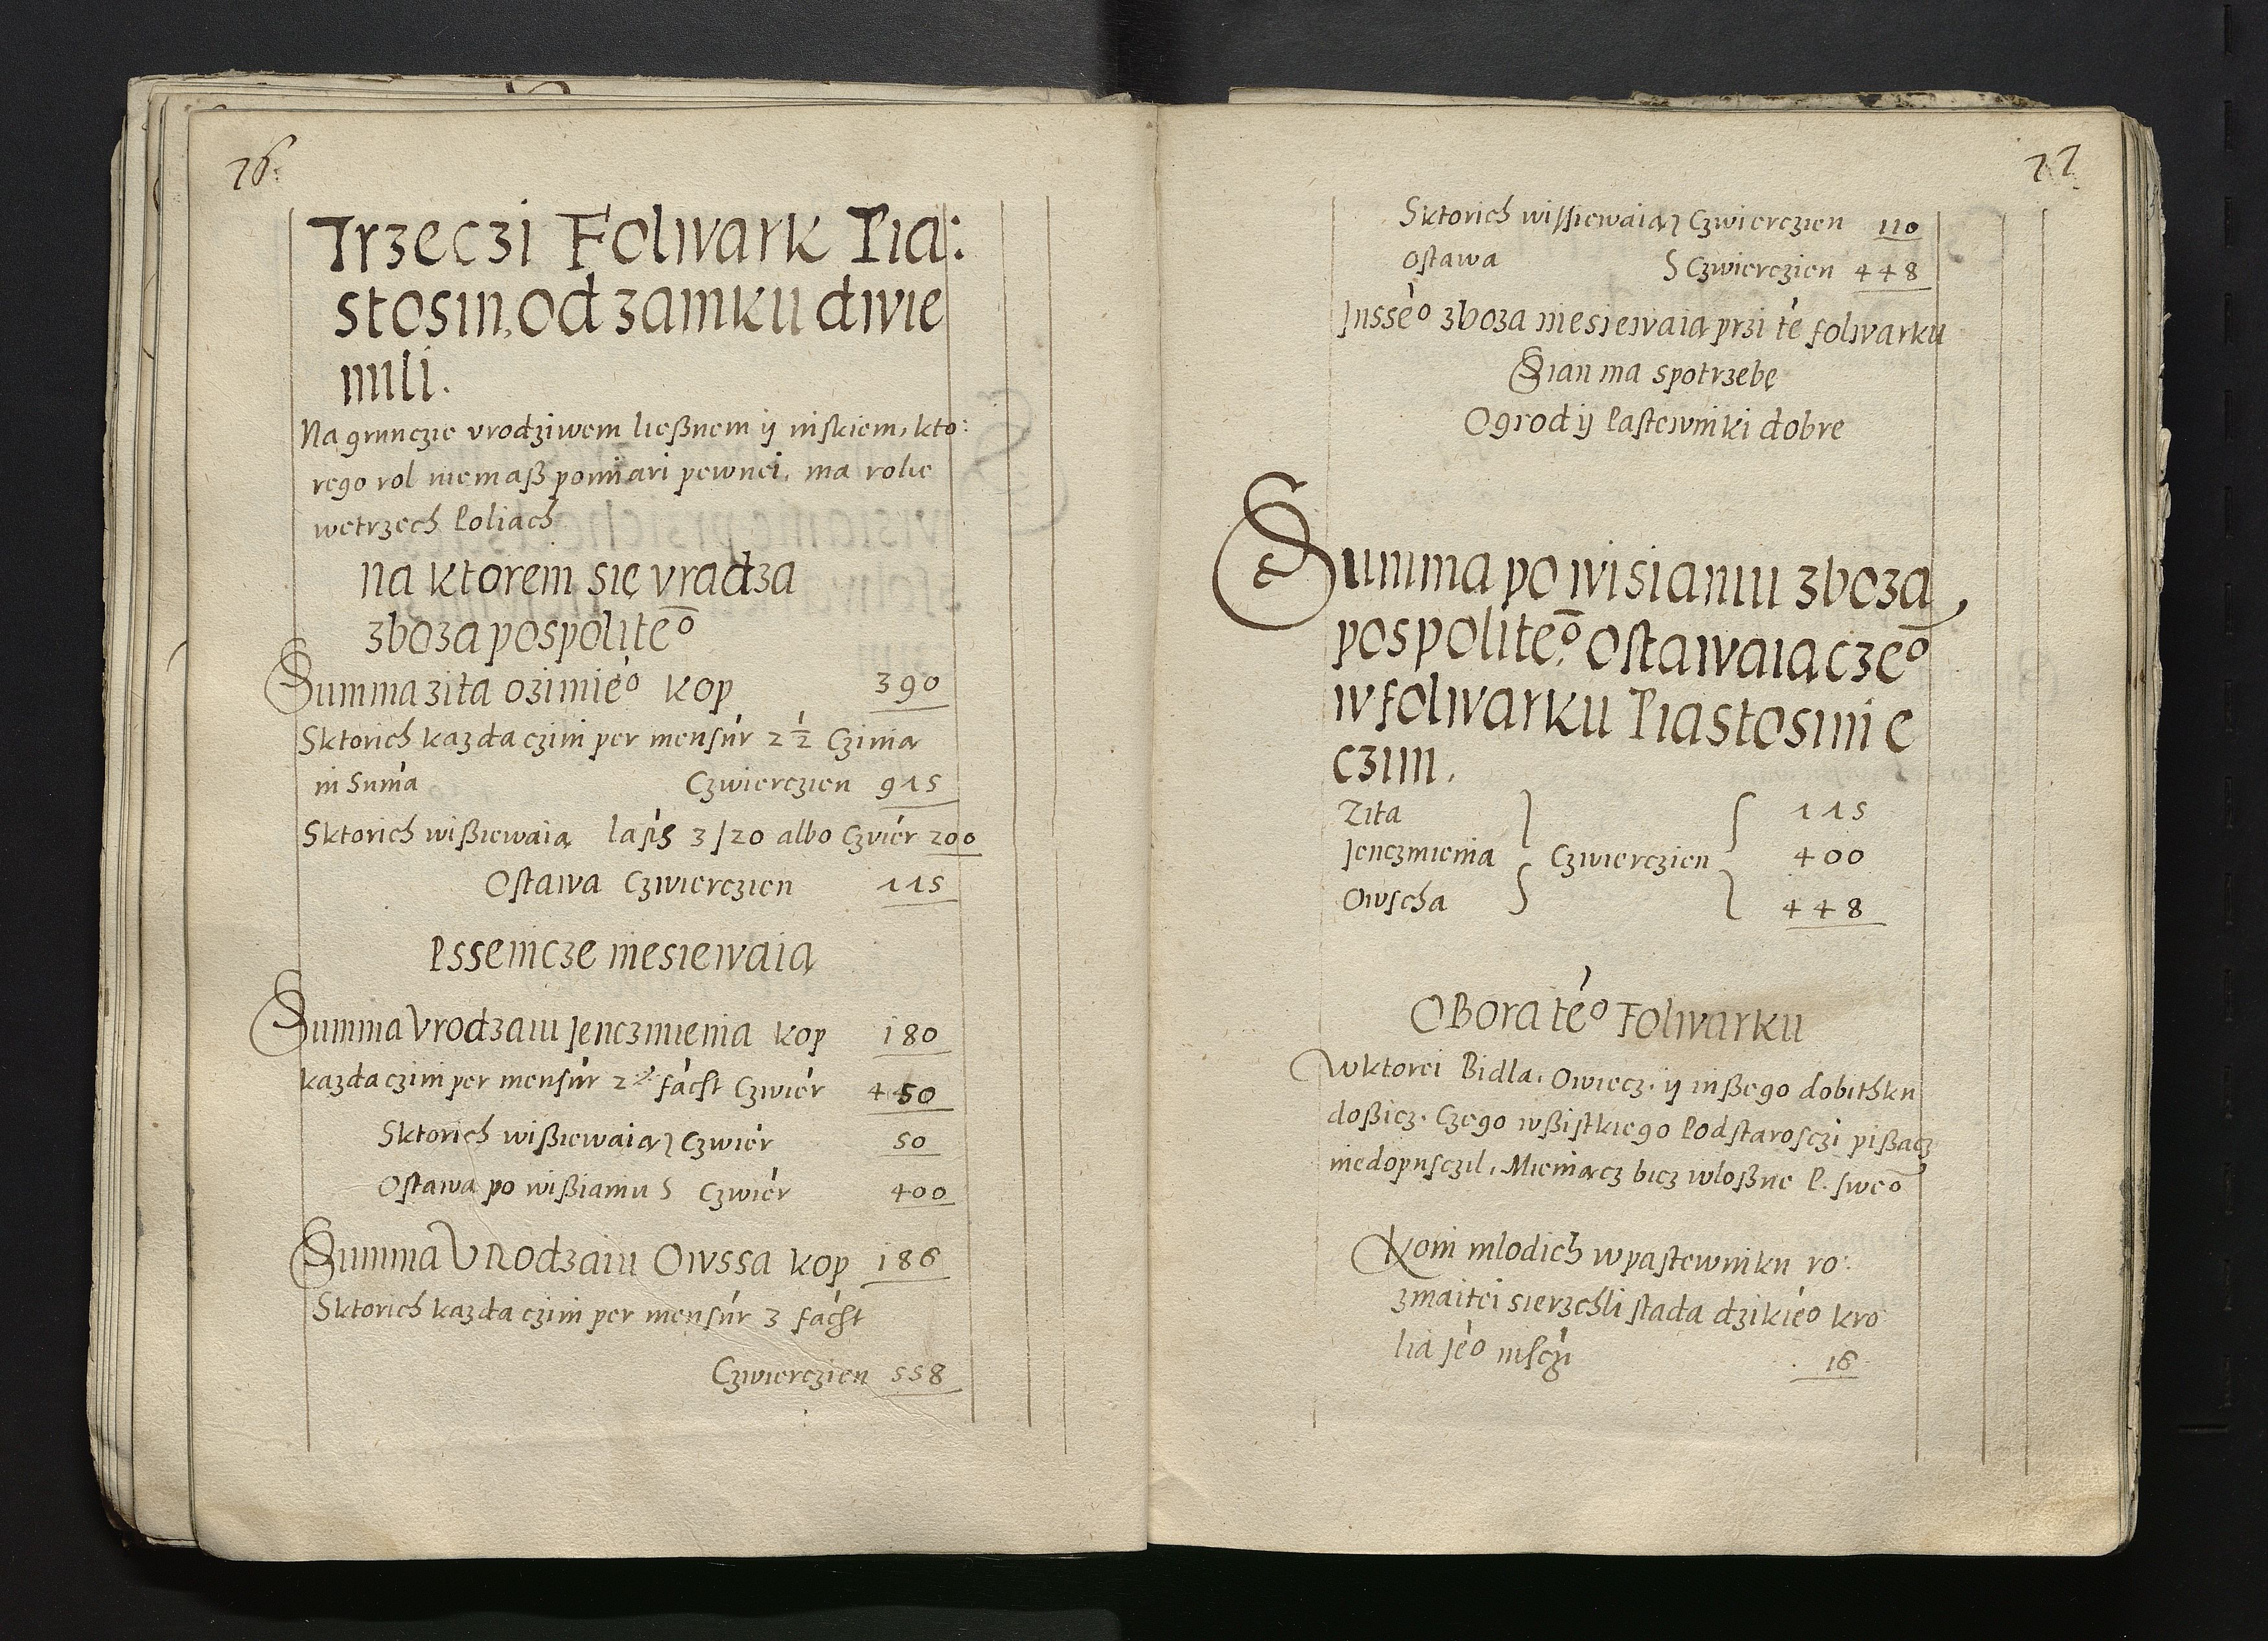 76
Trzeczi Folwark Pia:
stosin, Od zamku dwie
mili.
Na grunczie vrodziwem ließnem ÿ niskiem, kto:
rego rol niemaß pomiari pewnei, ma rolie
wetrzech Poliach
na ktorem się vradza
zboza pospolite͞o
Summa zita ozimié͞o kop 390
Sktorich kazda czini per mensúr 2 ½ Czinia
in Suma Czwierczien 915
Sktorich wißiewaią laẛs 3 ʃ 20 albo Czvier 200
Ostawa Czwierczien 115
Pssenicze niesiewaią
Summa Vrodzaiu Jenczmienia kop 180
kazda czini per mensúr 2 ½ fácit Czwiér 450
Sktorich wißiewaią Czwiér 50
Ostawa po wißianiu Czwiér 400
Summa VRodzaiu Owssa kop 186
Sktorich kazda czini per mensúr 3 fácit
Czwierczien 558
77
Sktorich wissiewaią Czwierczien 110
Ostawa Czwierczien 448
Jnssé͞o zboza niesiewaią przi té folwarku
Sian ma spotrzebę
Ogrod ÿ Pastewniki dobre
Summa po wisianiu zboza
pospolite͞o, Ostawaiącze͞o
w folwarku Piastosinie
czim.
Zita 115
Jenczmienia Czwierczien 400
Owscha 448
OBora té͞o Folwarku
Wktorei Bidla, Owiecz, ÿ inßego dobithku
doßicz. Czego wßistkiego Podstarosczi pißacz
niedopusczil, Mieniącz bicz wloßne P. swe͞o
Koni mlodich wpastewniku ro:
zmaitei sierzchli stada dzikié͞o kro
lia Jé͞o msczi 16